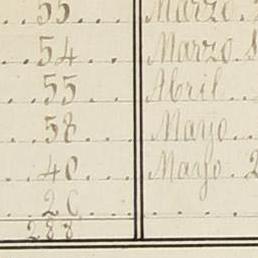 55... Marzo.
54... Marzo.
55... Abril.
58... Mayo.
40... Mayo. 2
26
288